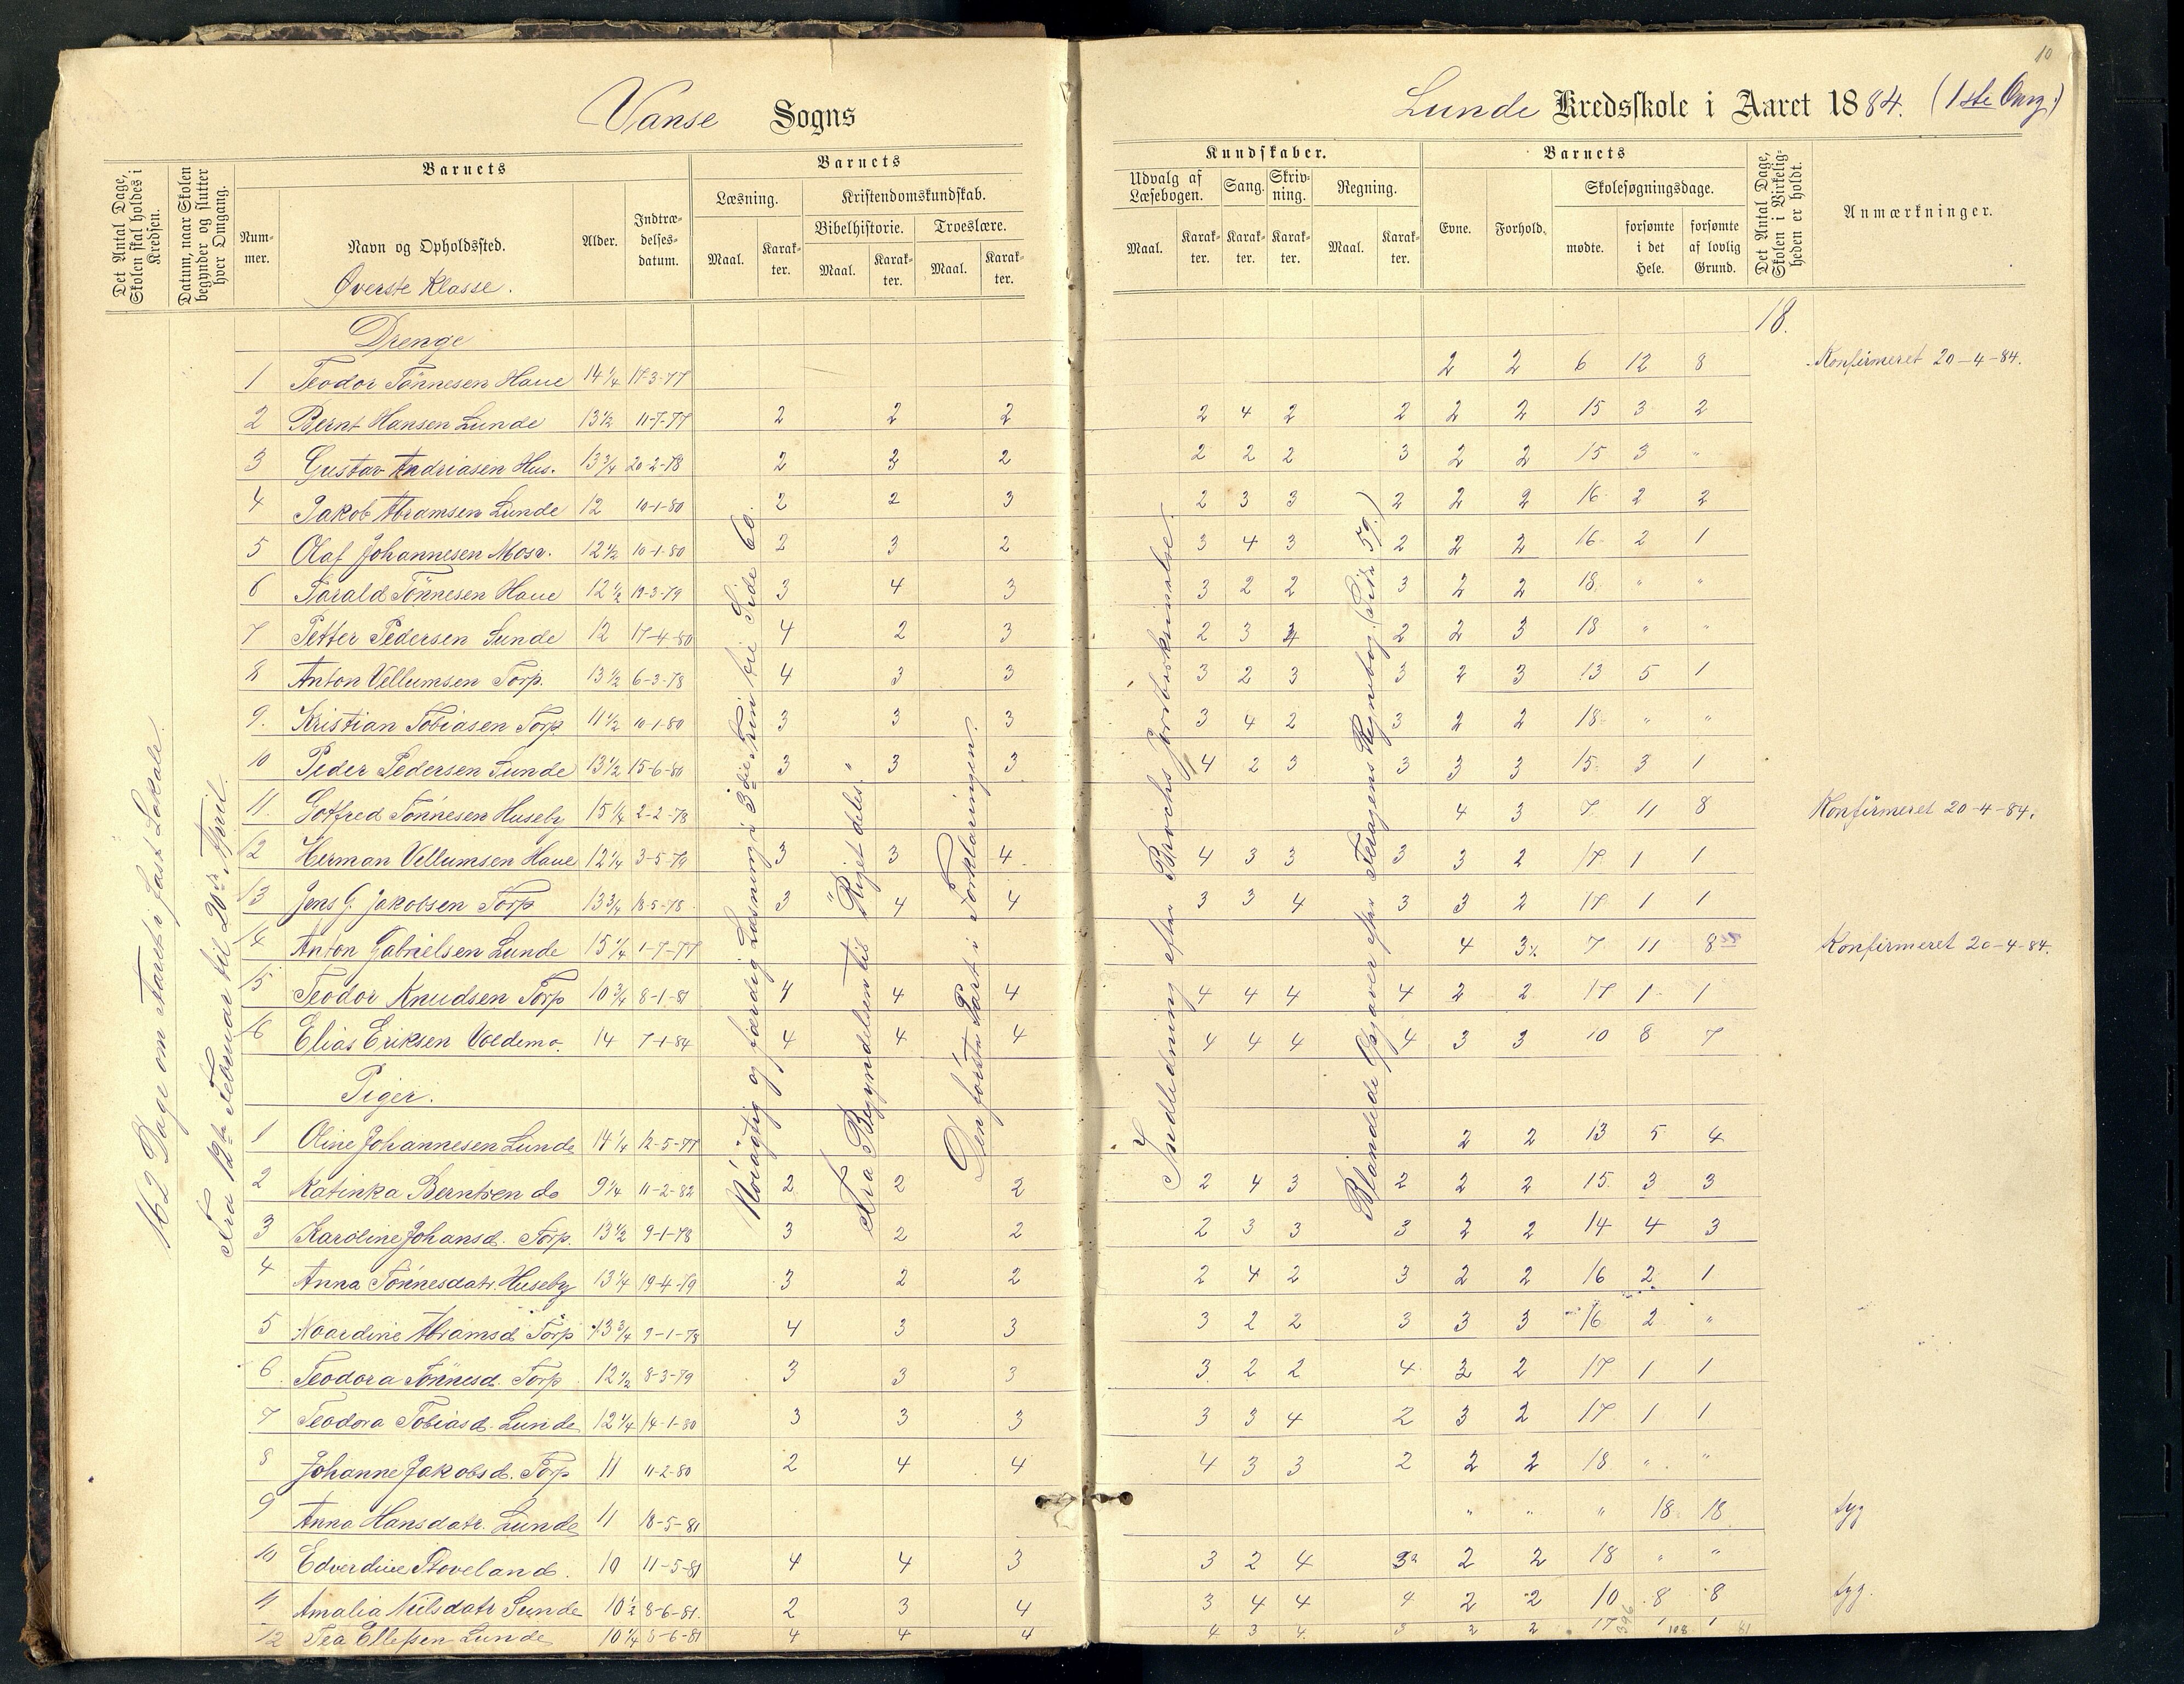 10
Vanse Sogns
Lunde Kredsskole i Aaret 1884. (1ste Omg.)
Det Antal Dage, Skolen skal holdes i Kredsen.
Datum, naar Skolen begynder og slutter hver Omgang.
Barnets
Nummer.
Navn og Opholdssted.
Øverste Klasse.
Alder.
Indtrædelsesdatum.
Barnets
Læsning.
Kristendomskundskab.
Bibelhistorie.
Troeslære.
Maal.
Karakter.
Maal.
Karakter.
Maal.
Karakter.
Kundskaber.
Udvalg af Læsebogen.
Sang.
Skrivning.
Regning.
Maal.
Karakter.
Karakter.
Karakter.
Maal.
Karakter.
Barnets
Evne.
Forhold.
Skolesøgningsdage.
mødte.
forsømte i det Hele.
forsømte af lovlig Grund.
Det Antal Dage, Skolen i Virkeligheden er holdt.
Anmærkninger.
162 Dage om Aaret i fast Lokale.
Fra 12te Februar til 20de April.
Nøiagtig og færdig Læsning i 3die Trin fra Side 60.
Fra Begyndelsen til Riget deles.
Den første Part i Forklaringen.
Indledning efter Brochs
Blandede Opgaver efter Regnebog. (Side 59.)
Drenge
18.
1 Teodor Tönnesen Haue 14 1/4 17-3-77 2 2 6 12 8 Konfirmeret 20-4-84.
2 Bernt Hansen Lunde 13 1/2 11-7-77 2 2 2 2 4 2 2 2 2 15 3 2
3 Gustav Andriasen Hus. 13 3/4 20-2-78 2 3 2 2 2 2 3 2 2 15 3 "
4 Jakob Abramsen Lunde 12 10-1-80 2 2 3 2 3 3 2 2 2 16 2 2
5 Olaf Johannesen Mosv. 12 1/2 10-1-80 2 3 2 3 4 3 2 2 2 16 2 1
6 Tarald Tönnesen Haue 12 1/2 19-3-79 3 4 3 3 2 2 3 2 2 18 " "
7 Petter Pedersen Sunde 12 17-4-80 4 2 3 2 3 4 2 2 3 18 " "
8 Anton Vellumsen Torp. 13 1/2 6-3-78 4 3 3 3 2 3 3 2 3 13 5 1
9. Kristian Tobiasen Torp 11 1/2 10-1-80 3 3 3 3 4 2 3 2 2 18 " "
10 Peder Pedersen Sunde 13 1/2 15-6-80 3 " 3 3 4 2 3 3 3 3 15 3 1
11. Gotfred Tönnesen Huseby 15 1/4 2-2-78 4 3 7 11 8 Konfirmeret 20-4-84.
12 Herman Vellumsen Haue 12 1/4 3-5-79 3 3 4 4 3 3 3 3 2 17 1 1
13 Jens G. Jakobsen Torp 13 3/4 18-5-78 3 4 4 3 3 4 3 3 2 17 1 1
14 Anton Gabrielsen Lunde 15 1/4 1-7-77 4 3 7 11 8 Konfirmeret 20-4-84.
15 Teodor Knudsen Torp 10 3/4 8-1-81 4 4 4 4 4 4 4 2 2 17 1 1
16 Elias Eriksen Voldemo. 14 7-1-84 4 4 4 4 4 4 4 3 3 10 8 7
Piger.
1 Oline Johannesen Lunde 14 1/4 12-5-77 2 2 13 5 4
2 Katinka Berntsen do 9 1/4 11-2-82 2 2 2 2 4 3 2 2 2 15 3 3
3 Karoline Johansd. Torp. 13 1/2 9-1-78 3 2 2 2 3 3 3 2 2 14 4 3
4 Anna Tönnesdatr. Huseby 13 1/4 19-4-79 3 2 2 2 4 2 3 2 2 16 2 1
5 Naardine Abramsd Torp 13 3/4 9-1-78 4 3 3 3 2 2 3 3 3 16 2 "
6 Teodora Tönnesd. Torp 12 1/2 8-3-79 3 3 3 3 2 2 4 3 2 17 1 1
7 Teodora Tobiasd. Lunde 12 1/4 14-1-80 3 3 3 3 3 4 2 3 2 17 1 1
8 Johanne Jakobsd. Torp 11 11-2-80 2 4 4 4 3 3 2 2 2 18 " "
9 Anna Hansdatr. Lunde 11 18-5-81 " " " 18 18 syg
10 Edverdine Stoveland. 10 11-5-81 4 4 3 3 2 4 2 2 18 " "
11 Amalia Nilsdatr Sunde 10 1/2 8-6-81. 2 3 4 3 4 4 4 2 2 10 8 8 syg.
12 Tea Ellefsen Lunde 10 1/4 8-6-81 4 4 4 4 3 4 3 2 2 17 1 1
396 108 81